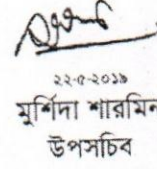 ২২-৫-২০১৯
মুর্শিদা শারমিন
উপসচিব